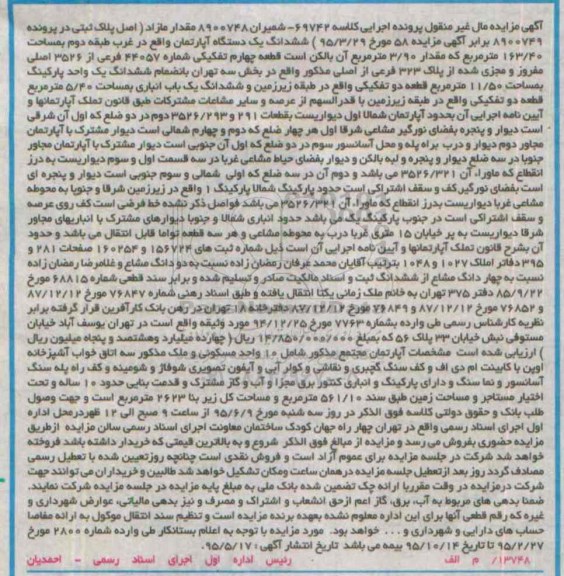 آگهی مزایده مال غیر منقول پرونده اجرایی کلاسه ۶۹۷۴۲- شمیران ۸۹۰۰۷۴۸ مقدار مازاد ( اصل پلاک ثبتی در پرونده
۸۹۰۰۷۴۹ برابر آگهی مزایده ۵۸ مورخ ۹۵/۳/۲۹ ) ششدانگ یک دستگاه آپارتمان واقع در غرب طبقه دوم بمساحت
۱۶۳/۴۰ مترمربع که مقدار ۳/۹۰ مترمربع آن بالکن است قطعه چهارم تفکیکی شماره ۴۴۰۵۷ فرعی از ۳۵۲۶ اصلی
مفروز و مجزی شده از پلاک ۳۲۳ فرعی از اصلی مذکور واقع در بخش سه تهران بانضمام ششدانگ یک واحد پارکینگ
بمساحت ۱۱/۵۰ مترمربع قطعه دو تفکیکی واقع در طبقه زیرزمین و ششدانگ یک باب انباری بمساحت ۵/۴۰ مترمربع
قطعه دو تفکیکی واقع در طبقه زیرزمین با قدرالسهم از عرصه و سایر مشاعات مشترکات طبق قانون تملک آپارتمانها و
آیین نامه اجرایی آن بحدود آپارتمان شمالا اول دیواریست بقطعات ۲۹۱ و ۳۵۲۶/۲۹۳ دوم در دو ضلع که اول آن شرقی
است دیوار و پنجره بفضای نورگیر مشاعی شرقا اول هر چهار ضلع که دوم و چهارم شمالی است دیوار مشترک با آپارتمان
مجاور دوم دیوار و درب براه پله و محل آسانسور سوم در دو ضلع که اول آن جنوبی است دیوار مشترک با آپارتمان مجاور
جنوبا در سه ضلع دیوار و پنجره و لبه بالکن و دیوار بفضای حیاط مشاعی غربا در سه قسمت اول و سوم دیواریست به درز
انقطاع که ماوراء آن ۳۵۲۶/۳۲۱ می باشد و دوم آن در سه ضلع که اولی شمالی و سوم جنوبی است دیوار و پنجره ای
است بفضای نورگیر کف و سقف اشتراکی است حدود پارکینگ شمالا پارکینگ ۱ واقع در زیرزمین شرقا و جنوبا به محوطه
مشاعی غربا دیواریست بدرز انقطاع که ماوراء آن ۳۵۲۶/۳۲۱ می باشد فواصل ذکر نشده خط فرضی است کف روی عرصه
و سقف اشتراکی است در جنوب پارکینگ یک پایه می باشد حدود انباری شمالا و جنوبا دیوارهای مشترک با انباریهای مجاور
شرقا دیواریست به پر خیابان ۱۵ متری غربا درب به محوطه مشاعی و هر سه قطعه تواما قابل انتقال می باشد و حدود
آن بشرح قانون تملک آپارتمانها و آیین نامه اجرایی آن است ذیل شماره ثبت های ۱۵۶۷۲۴ و ۱۶۰۲۵۴ صفحات ۲۸۱ و
۳۹۵ دفاتر املاک ۱۰۲۷ و ۱۰۴۸ بترتیب آقایان محمد عرفان رمضان زاده نسبت به دو دانگ مشاع و غلامرضا رمضان زاده
نسبت به چهار دانگ مشاع از ششدانگ ثبت و اسناد مالکیت صادر و تسلیم شده و برابر سند قطعی شماره ۶۸۸۱۵ مورخ
۸۵/۹/۲۲ دفتر ۳۷۵ تهران به خانم ملک زمانی یکتا انتقال یافته و طبق اسناد رهنی شماره ۷۶۸۴۷ مورخ ۸۷/۱۲/۱۲
و ۷۶۸۵۲ مورخ ۸۷/۱۲/۱۲ و ۷۶۸۴۹ مورخ ۸۷/۱۲/۱۲ دفترخانه ۱۸ تهران در رهن بانک کارآفرین قرار گرفته برابر
نظریه کارشناس رسمی طی وارده بشماره ۷۷۶۳ مورخ ۹۴/۱۲/۲۵ مورد وثیقه واقع است در تهران یوسف آباد خیابان
مستوفی نبش خیابان ۳۳ پلاک ۵۶ که بمبلغ ۱۴/۸۵۰/۰۰۰/۰۰۰ ریال ( چهارده میلیارد وهشتصد و پنجاه میلیون ریال
) ارزیابی شده است مشخصات آپارتمان مجتمع مذکور شامل ۱۰ واحد مسکونی و ملک مذکور سه اتاق خواب آشپزخانه
اوپن با کابینت ام دی اف و کف سنگ گچبری و نقاشی و کولر آبی و آیفون تصویری شوفاژ و شومینه و کف راه پله سنگ
آسانسور و نما سنگ و دارای پارکینگ و انباری کنتور برق مجزا و آب و گاز مشترک و قدمت بنایی حدود ۱۰ ساله و تحت
اختیار مستاجر و مساحت زمین طبق سند ۵۶۱/۱۰ مترمربع و مساحت کل زیر بنا ۲۶۲۳ مترمربع است و جهت وصول
طلب بانک و حقوق دولتی کلاسه فوق الذکر در روز سه شنبه مورخ ۹۵/۶/۹ از ساعت ۹ صبح الی ۱۲ ظهردرمحل اداره
اول اجرای اسناد رسمی واقع در تهران چهار راه جهان کودک ساختمان معاونت اجرای اسناد رسمی سالن مزایده ازطریق
مزایده حضوری بفروش می رسد و مزایده از مبالغ فوق الذکر شروع و به بالاترین قیمتی که خریدار داشته باشد فروخته
خواهد شد شرکت در جلسه مزایده برای عموم آزاد است و فروش نقدی است چنانچه روزتعیین شده با تعطیل رسمی
مصادف گردد روز بعد ازتعطیل جلسه مزایده درهمان ساعت ومکان تشکیل خواهد شد طالبین و خریداران می توانند جهت
شرکت درمزایده در وقت مقرربا ارائه چک تضمین شده بانک ملی به مبلغ پایه مزایده در جلسه مزایده شرکت نمایند.
ضمنا بدهی های مربوط به آب، برق، گاز اعم ازحق انشعاب و اشتراک و مصرف و نیز بدهی مالیاتی، عوارض شهرداری و
غیره که رقم قطعی آنها برای این اداره معلوم نشده بعهده برنده مزایده است و تنظیم سند انتقال موکول به ارائه مفاصا
حساب های دارایی و شهرداری و . . . خواهد بود. مورد مزایده با توجه به اعلام بستانکار طی وارده شماره ۲۸۰۰ مورخ
۹۵/۲/۲۷ تا تاریخ ۹۵/۱۰/۱۴ بیمه می باشد تاریخ انتشار آگهی: ۹۵/۵/۱۷.
۱۳۷۴۸/ م الف رئیس اداره اول اجرای اسناد رسمی - احمدیان